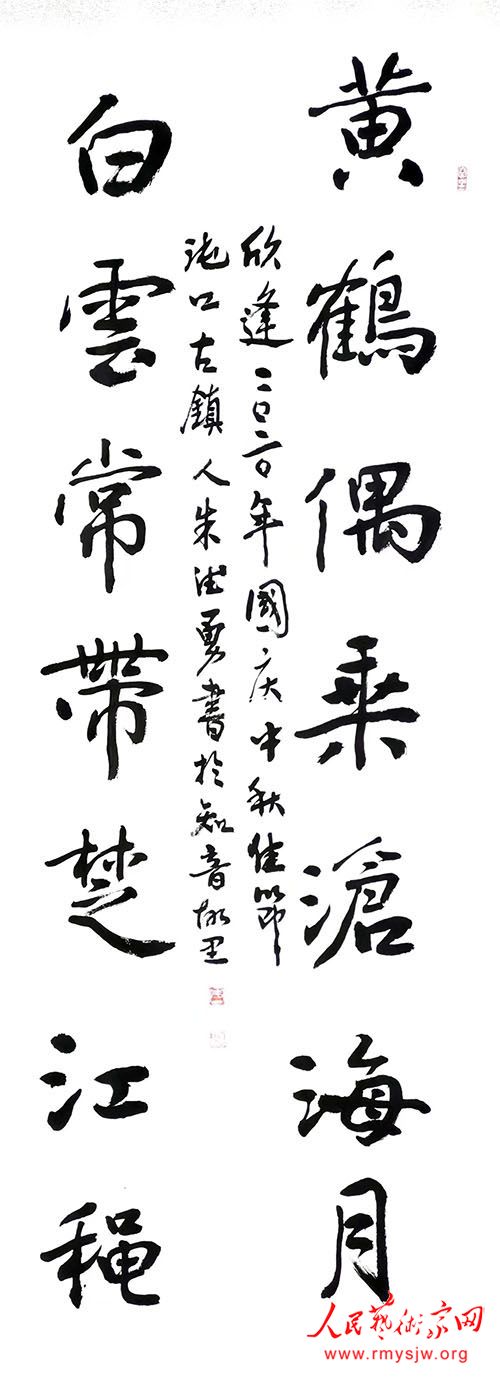 黄鶴偶乘滄海月
欣逢二〇二〇年國庆中秋佳節
沌口古鎮人朱德勇書於知音故里
白雲常帶楚江穐
人民藝術家网
www.rmysjw.org